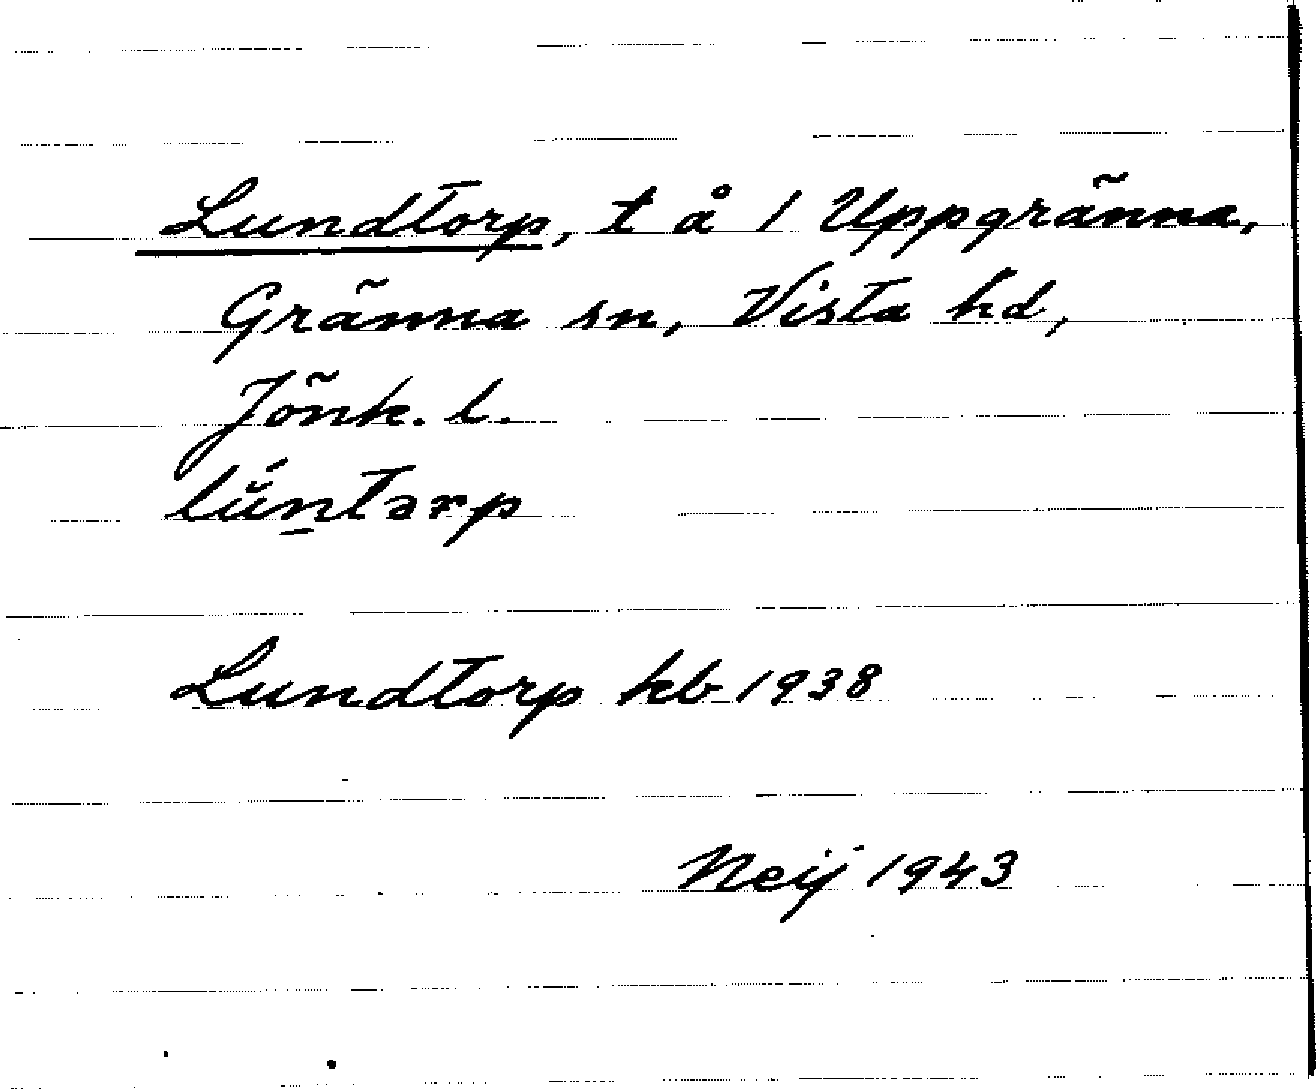 Lundtorp, t å 1 Uppgränna,
Gränna sn, Vista hd,
Jönk. l.
lǘntərp
Lundtorp kb 1938
Neij 1943